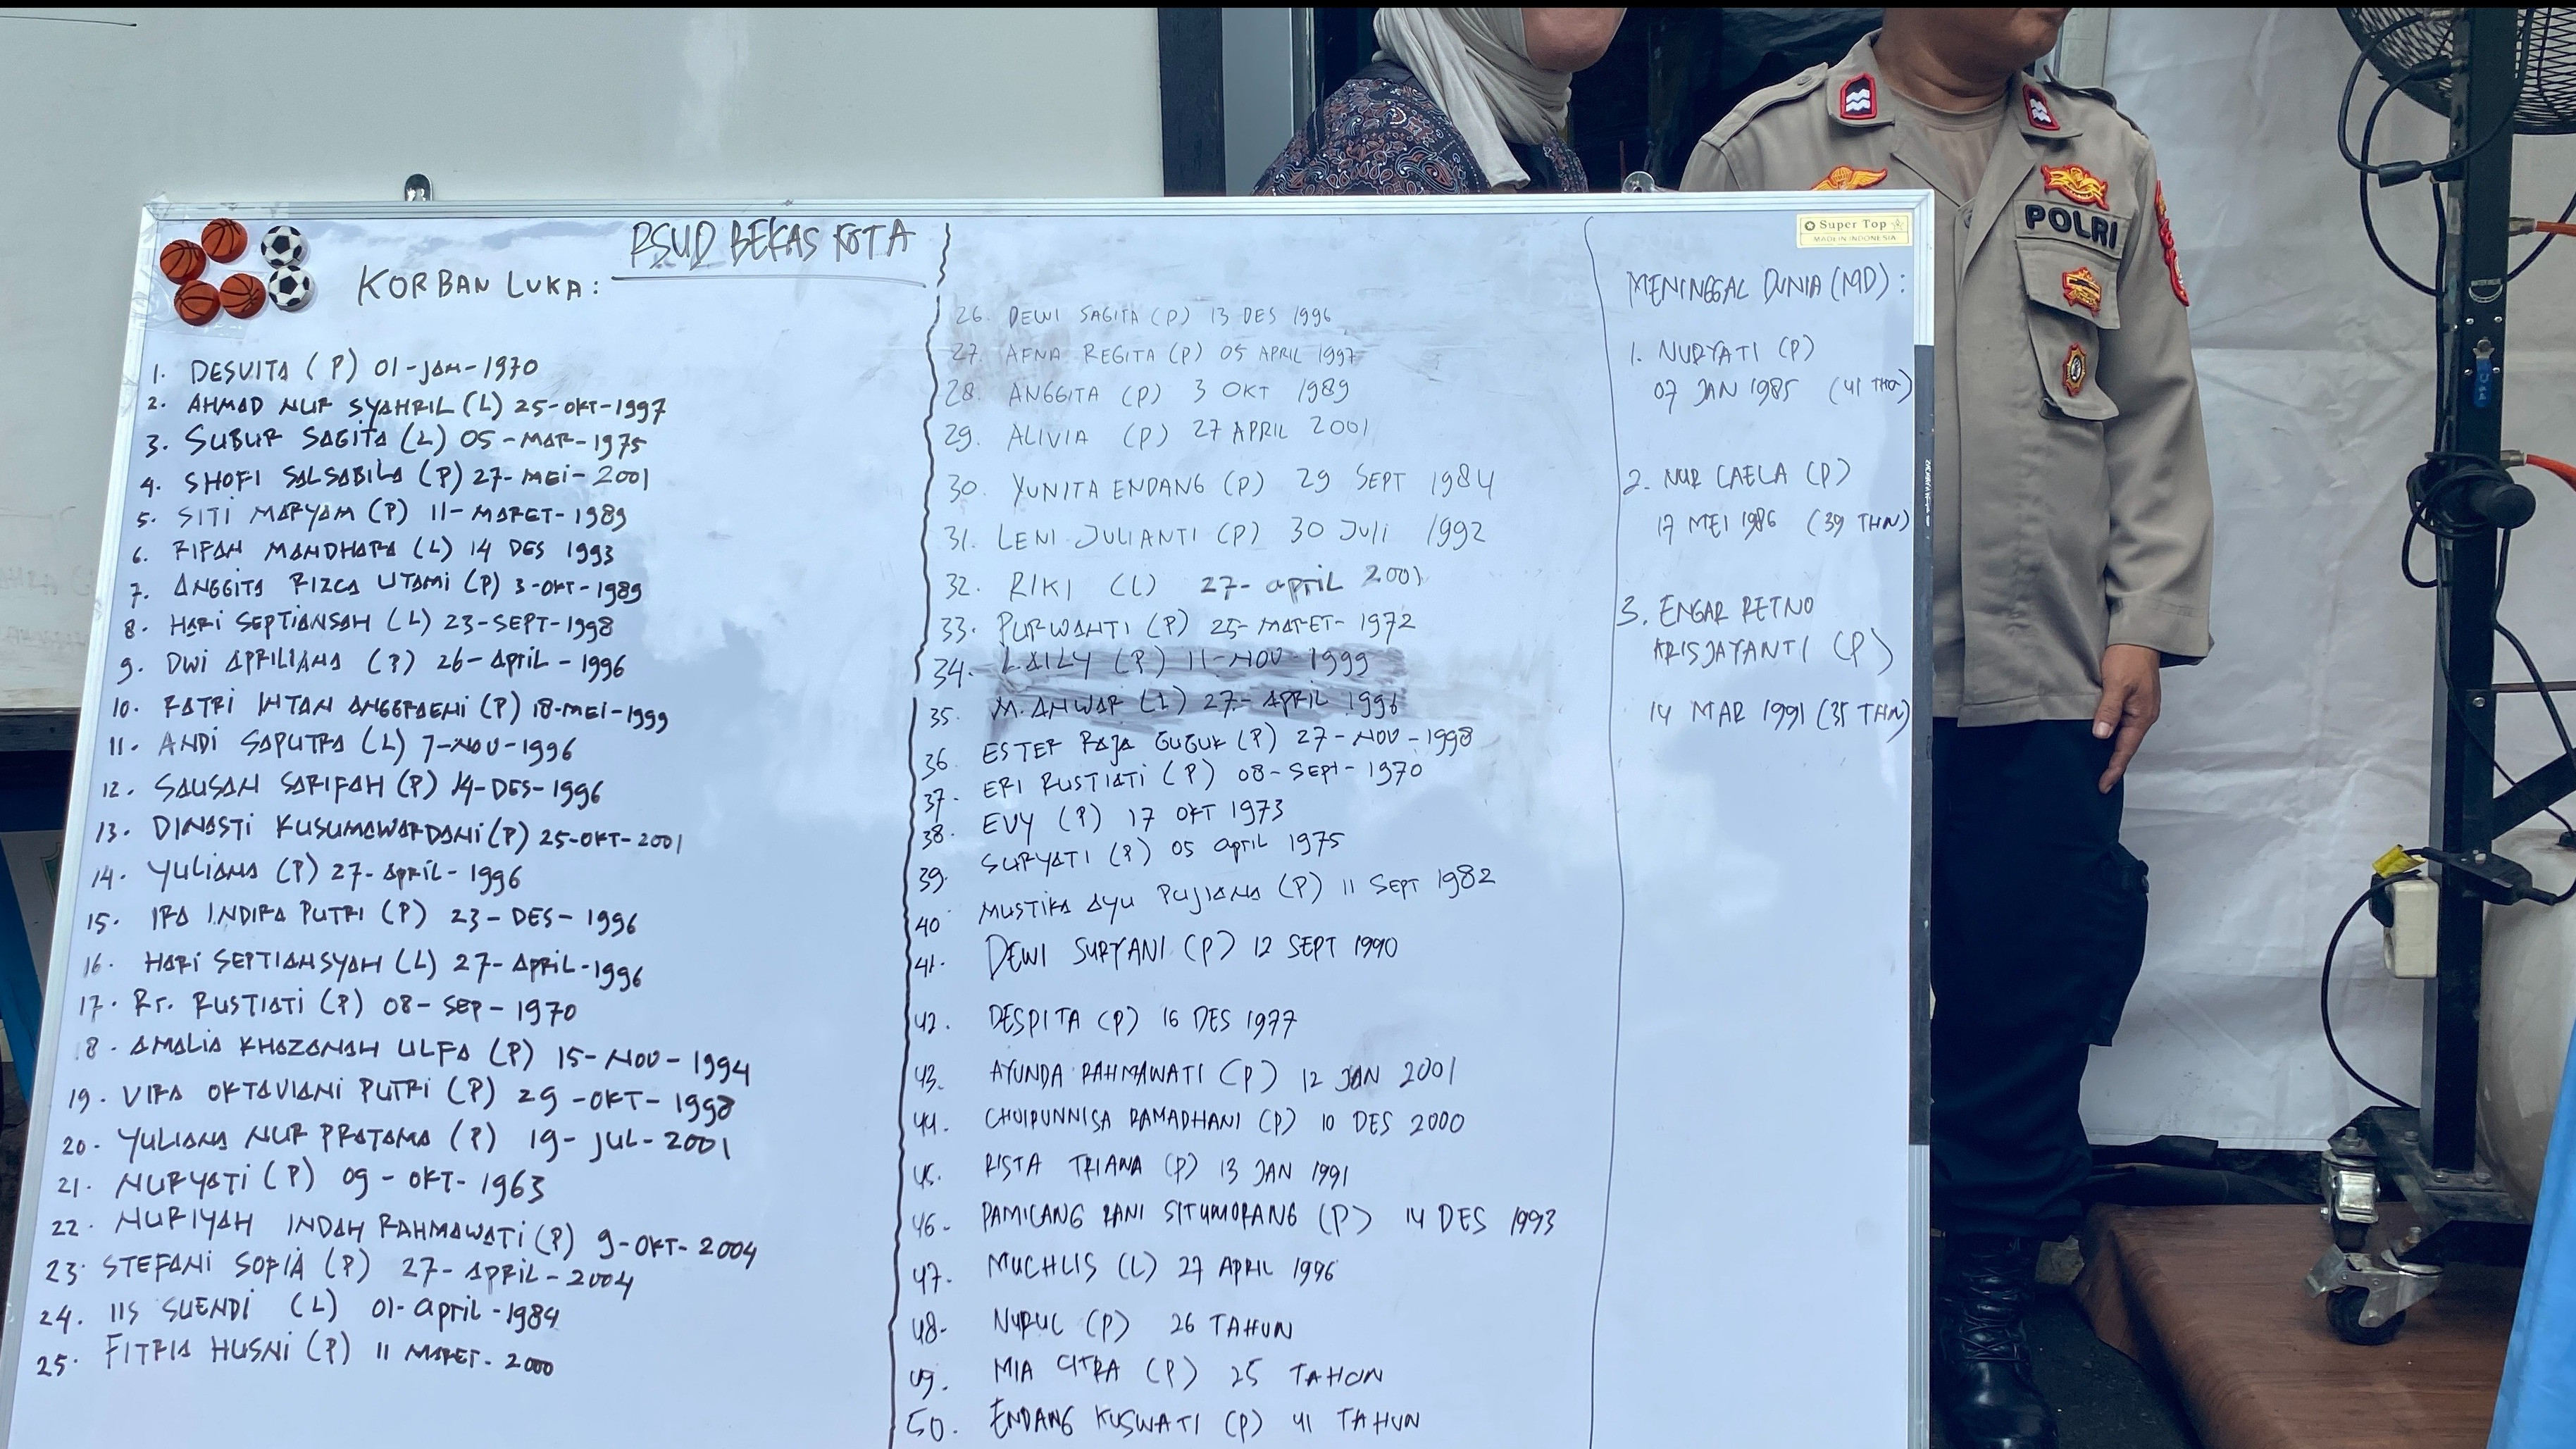 RSUD BEKAS KOTA
KORBAN LUKA:
1. DESVITA (P) 01-JAN-1970
2. AHMAD NUR SYAHRIL (L) 25-OKT-1997
3. SUBUR SAGITA (L) 05-MAR-1975
4. SHOFI SALSABILA (P) 27-MEI-2001
5. SITI MARYAM (P) 11-MARET-1989
6. RIFAN MANDHARA (L) 14 DES 1993
7. ANGGITA RIZCA UTAMI (P) 3-OKT-1989
8. HARI SEPTIANSAH (L) 23-SEPT-1998
9. DWI APRILIANA (P) 26-April-1996
10. RATRI INTAN ANGGRAENI (P) 18-MEI-1999
11. ANDI SAPUTRA (L) 7-NOV-1996
12. SAUSAN SARIFAH (P) 14-DES-1996
13. DINASTI KUSUMAWARDANI (P) 25-OKT-2001
14. YULIANA (P) 27-April-1996
15. IRA INDIRA PUTRI (P) 23-DES-1996
16. HARI SEPTIANSYAH (L) 27-April-1996
17. Rr. RUSTIATI (P) 08-SEP-1970
18. AMALIA KHAZANAH ULFA (P) 15-NOV-1994
19. VIRA OKTAVIANI PUTRI (P) 29-OKT-1998
20. YULIANA NUR PRATAMA (P) 19-JUL-2001
21. NURYATI (P) 09-OKT-1963
22. NURIYAH INDAH RAHMAWATI (P) 9-OKT-2004
23. STEFANI SOFIA (P) 27-APRIL-2004
24. IIS SUENDI (L) 01-April-1984
25. FITRIA HUSNI (P) 11 MARET-2000
26. DEWI SAGITA (P) 13 DES 1996
27. AFNA REGITA (P) 05 APRIL 1997
28. ANGGITA (P) 3 OKT 1989
29. ALIVIA (P) 27 APRIL 2001
30. YUNITA ENDANG (P) 29 SEPT 1984
31. LENI JULIANTI (P) 30 Juli 1992
32. RIKI (L) 27-april 2001
33. PURWANTI (P) 25-MARET-1972
34. LAILY (P) 11-NOV-1999
35. M. ANWAR (L) 27-APRIL 1996
36. ESTER RAJA GUGUK (P) 27-NOV-1998
37. ERI RUSTIATI (P) 08-SEPT-1970
38. EVY (P) 17 OKT 1973
39. SURYATI (P) 05 april 1975
40 MUSTIKA AYU PUJIANA (P) 11 SEPT 1982
41. DEWI SURYANI (P) 12 SEPT 1990
42. DESPITA (P) 16 DES 1977
43. AYUNDA RAHMAWATI (P) 12 JAN 2001
44. CHOIRUNNISA RAMADHANI (P) 10 DES 2000
45. RISTA TRIANA (P) 13 JAN 1991
46. PAMILANG RANI SITUMORANG (P) 14 DES 1993
47. MUCHLIS (L) 27 APRIL 1996
48. NURUL (P) 26 TAHUN
49. MIA CITRA (P) 25 TAHUN
50. ENDANG KUSWATI (P) 41 TAHUN
Super Top
MADE IN INDONESIA
MENINGGAL DUNIA (MD):
1. NURYATI (P)
07 JAN 1985 (41 THN)
2. NUR LAELA (P)
17 MEI 1986 (39 THN)
3. ENGAR RETNO
KRISJAYANTI (P)
14 MAR 1991 (35 THN)
POLRI